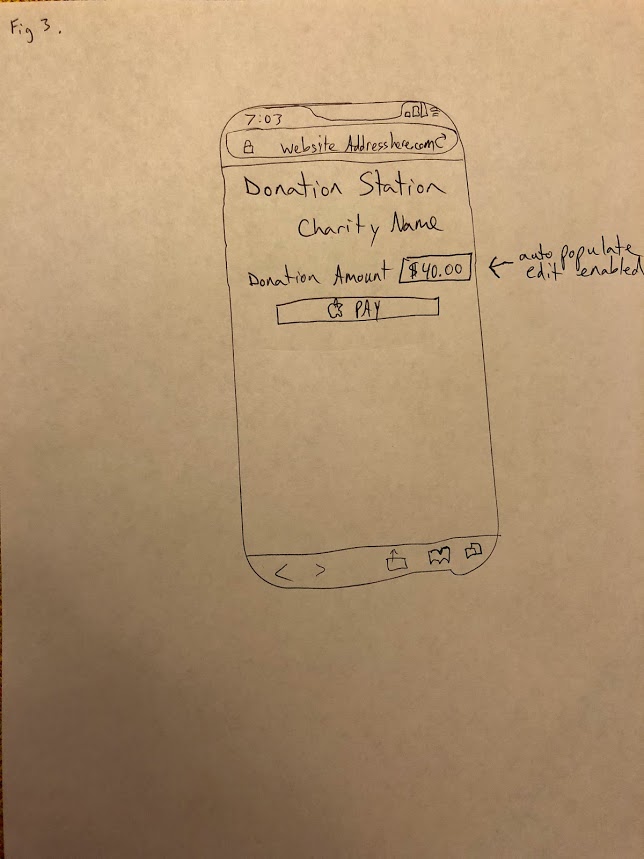 Fig 3.
7:03
website Addresshere.com
Donation Station
Charity Name
Donation Amount $40.00
auto populate
edit enabled
PAY